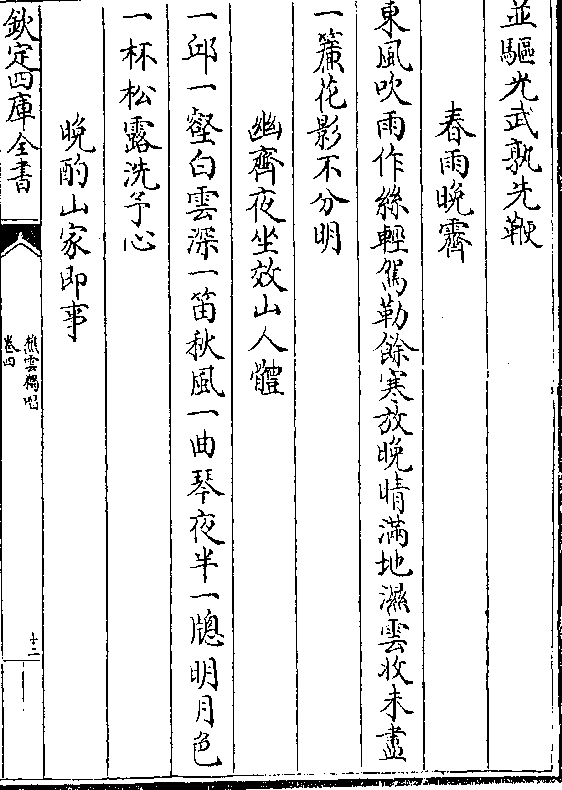 並驅光武孰先鞭
春雨晚霽
東風吹雨作絲輕駕勒餘寒放晚晴滿地濕雲收未盡
一簾花影不分明
幽齊夜坐效山人體
一邱一壑白雲深一笛秋風一曲琴夜半一牕明月色
一杯松露洗予心
晚酌山家即事
欽定四庫全書
樵雲獨唱
卷四
十二